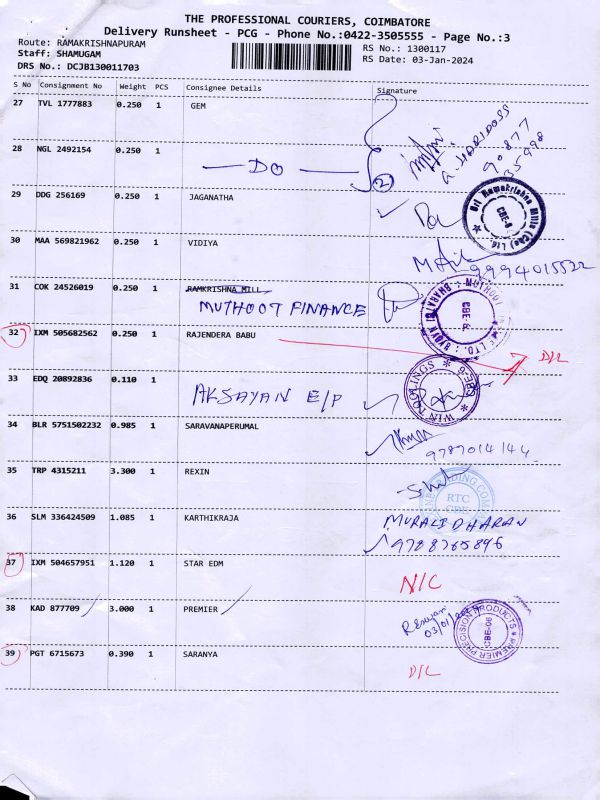 THE PROFESSIONAL COURIERS, COIMBATORE
Delivery Runsheet - PCG - Phone No.:0422-3505555 - Page No.:3
Route: RAMAKRISHNAPURAM
Staff: SHAMUGAM
DRS No.: DCJB130011703
RS No.: 1300117
RS Date: 03-Jan-2024
S No Consignment No Weight PCS Consignee Details Signature
27 TVL 1777883 0.250 1 GEM
28 NGL 2492154 0.250 1
— DO — 2
G. HARIDOSS
90877
35998
29 DDG 256169 0.250 1 JAGANATHA
Sri Ramakrishna Mills (Cbe) Ltd.
CBE-6
30 MAA 569821962 0.250 1 VIDIYA
9994015522
31 COK 24526019 0.250 1 RAMKRISHNA MILL
MUTHOOT FINANCE
CBE-6
32 IXM 505682562 0.250 1 RAJENDERA BABU
D/L
33 EDQ 20892836 0.110 1
AKSAYAN E/P
WIN TOOLINGS CBE-6
34 BLR 5751502232 0.985 1 SARAVANAPERUMAL
9787014144
35 TRP 4315211 3.300 1 REXIN
RTC
CBE
36 SLM 336424509 1.085 1 KARTHIKRAJA
MURALIDHARAN
9728765896
37 IXM 504657951 1.120 1 STAR EDM
N/C
38 KAD 877709 3.000 1 PREMIER
03/01/2024
PREMIER PRECISION PRODUCTS
CBE-06
39 PGT 6715673 0.390 1 SARANYA
D/L